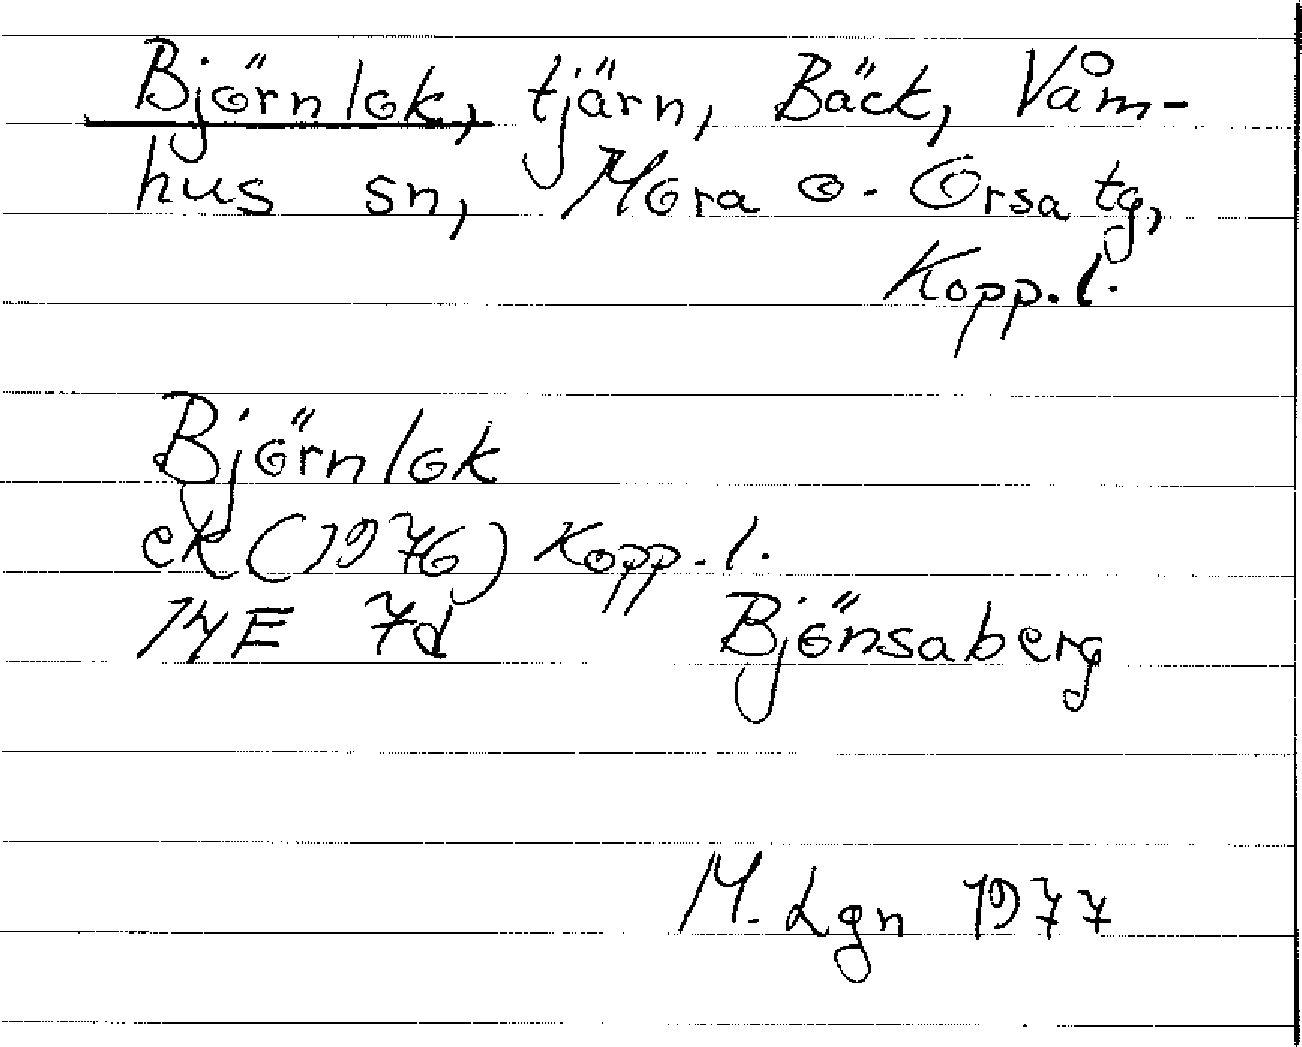 Björnlok, tjärn, Bäck, Våm-
hus sn, Mora o. Orsa tg,
Kopp. l.
Björnlok
ek (1976) Kopp. l.
14E 7d Bjönsaberg
M. Lgn 1977